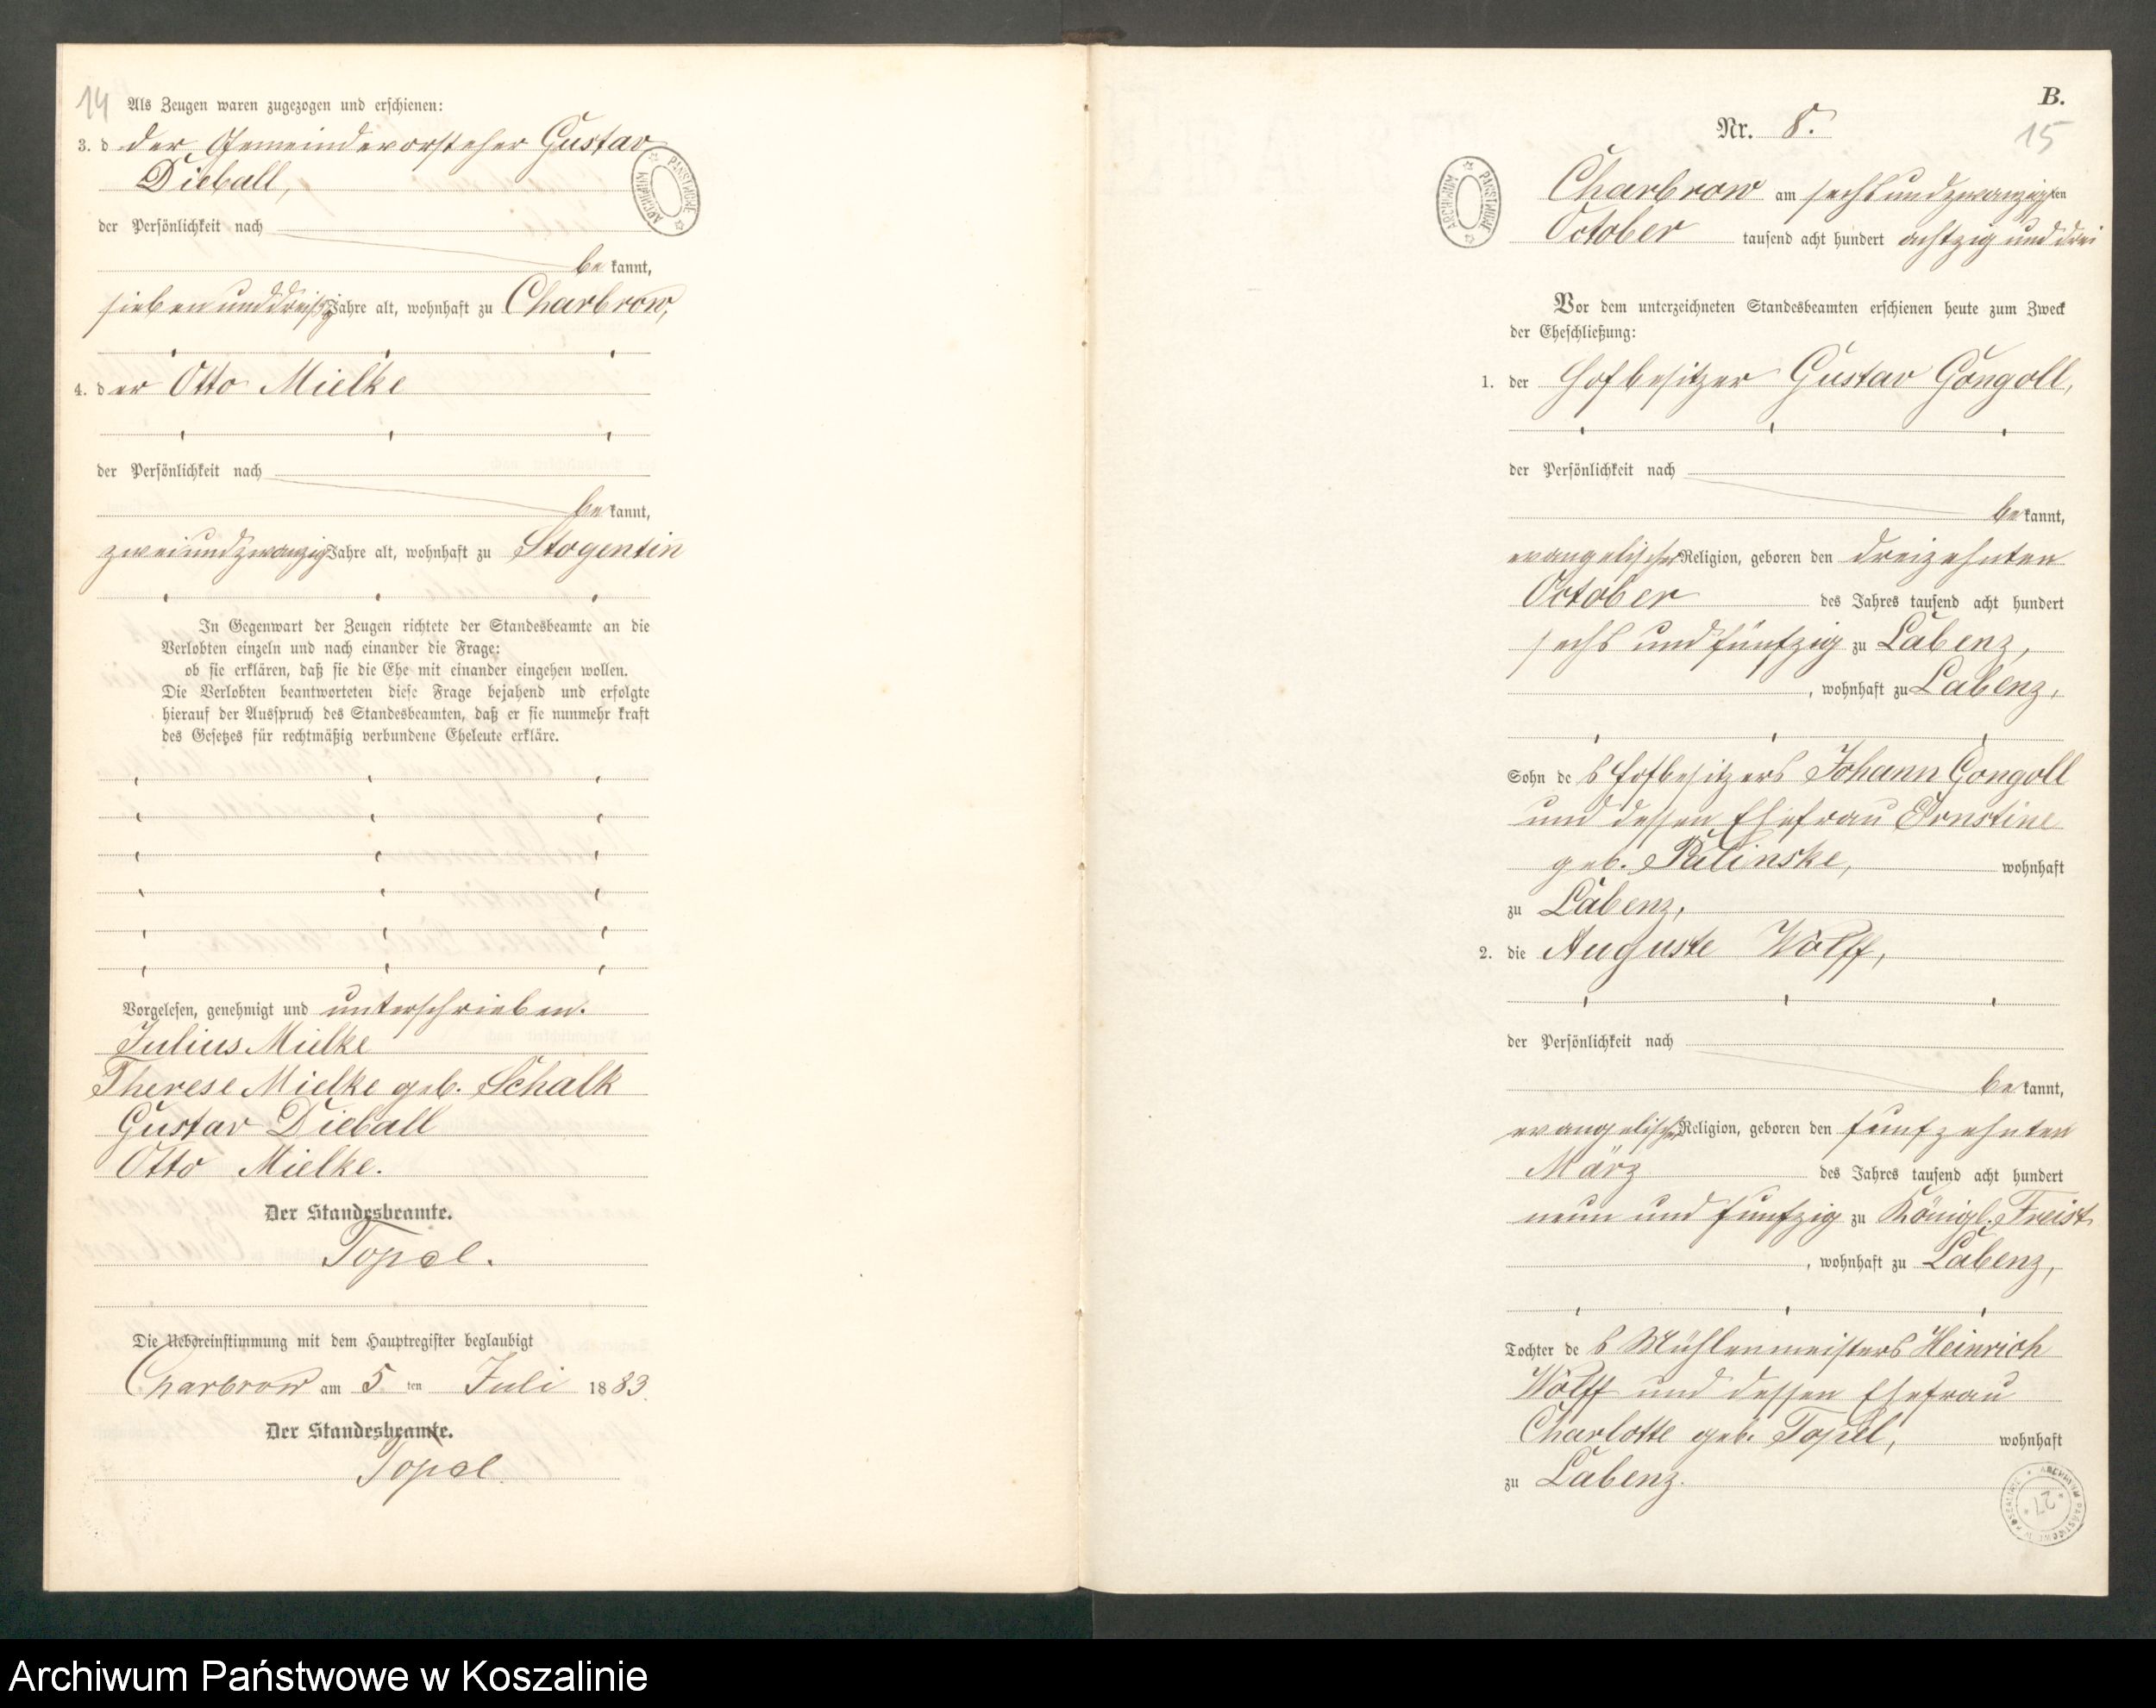 14
Als Zeugen waren zugezogen und erschienen:
3. d der Gemeindevorsteher Gustav
Dieball,
der Persönlichkeit nach
be kannt,
siebenunddreißig Jahre alt, wohnhaft zu Charbrow,
4. d er Otto Mielke
der Persönlichkeit nach
be kannt,
zweiundzwanzig Jahre alt, wohnhaft zu Stogentin
In Gegenwart der Zeugen richtete der Standesbeamte an die
Verlobten einzeln und nach einander die Frage:
ob sie erklären, daß sie die Ehe mit einander eingehen wollen.
Die Verlobten beantworteten diese Frage bejahend und erfolgte
hierauf der Ausspruch des Standesbeamten, daß er sie nunmehr kraft
des Gesetzes für rechtmäßig verbundene Eheleute erkläre.
Vorgelesen, genehmigt und unterschrieben.
Julius Mielke
Therese Mielke geb. Schalk
Gustav Dieball
Otto Mielke.
Der Standesbeamte.
Topel.
Die Uebereinstimmung mit dem Hauptregister beglaubigt
Charbrow am 5 ten Juli 1883.
Der Standesbeamte.
Topel.
ARCHIWUM PAŃSTWOWE
B.
15
Nr. 8.
ARCHIWUM PAŃSTWOWE
Charbrow am sechsundzwanzigsten
October tausend acht hundert achtzig und drei
Vor dem unterzeichneten Standesbeamten erschienen heute zum Zweck
der Eheschließung:
1. der Hofbesitzer Gustav Gongoll,
der Persönlichkeit nach
be kannt,
evangelischer Religion, geboren den dreizehnten
October des Jahres tausend acht hundert
sechs und fünfzig zu Labenz,
, wohnhaft zu Labenz,
Sohn de s Hofbesitzers Johann Gongoll
und dessen Ehefrau Ernstine
geb. Palinske, wohnhaft
zu Labenz,
2. die Auguste Wolff,
der Persönlichkeit nach
be kannt,
evangelischer Religion, geboren den fünfzehnten
März des Jahres tausend acht hundert
neun und fünfzig zu Königl. Freist
, wohnhaft zu Labenz,
Tochter de s Mühlenmeisters Heinrich
Wolff und dessen Ehefrau
Charlotte geb. Topel, wohnhaft
zu Labenz.
ARCHIWUM PAŃSTWOWE W KOSZALINIE * 27 *
Archiwum Państwowe w Koszalinie